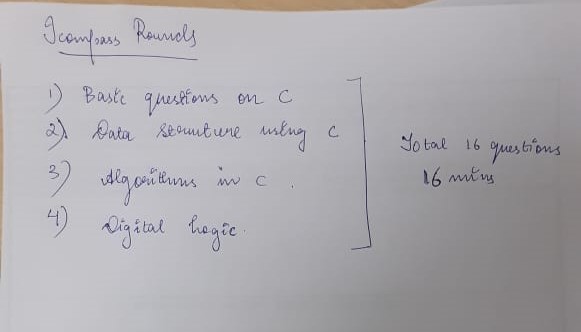 Icompass Rounds
1) Basic questions on C
2) Data structure using C
3) Algorithms in C.
4) Digital Logic.
Total 16 questions
16 mins